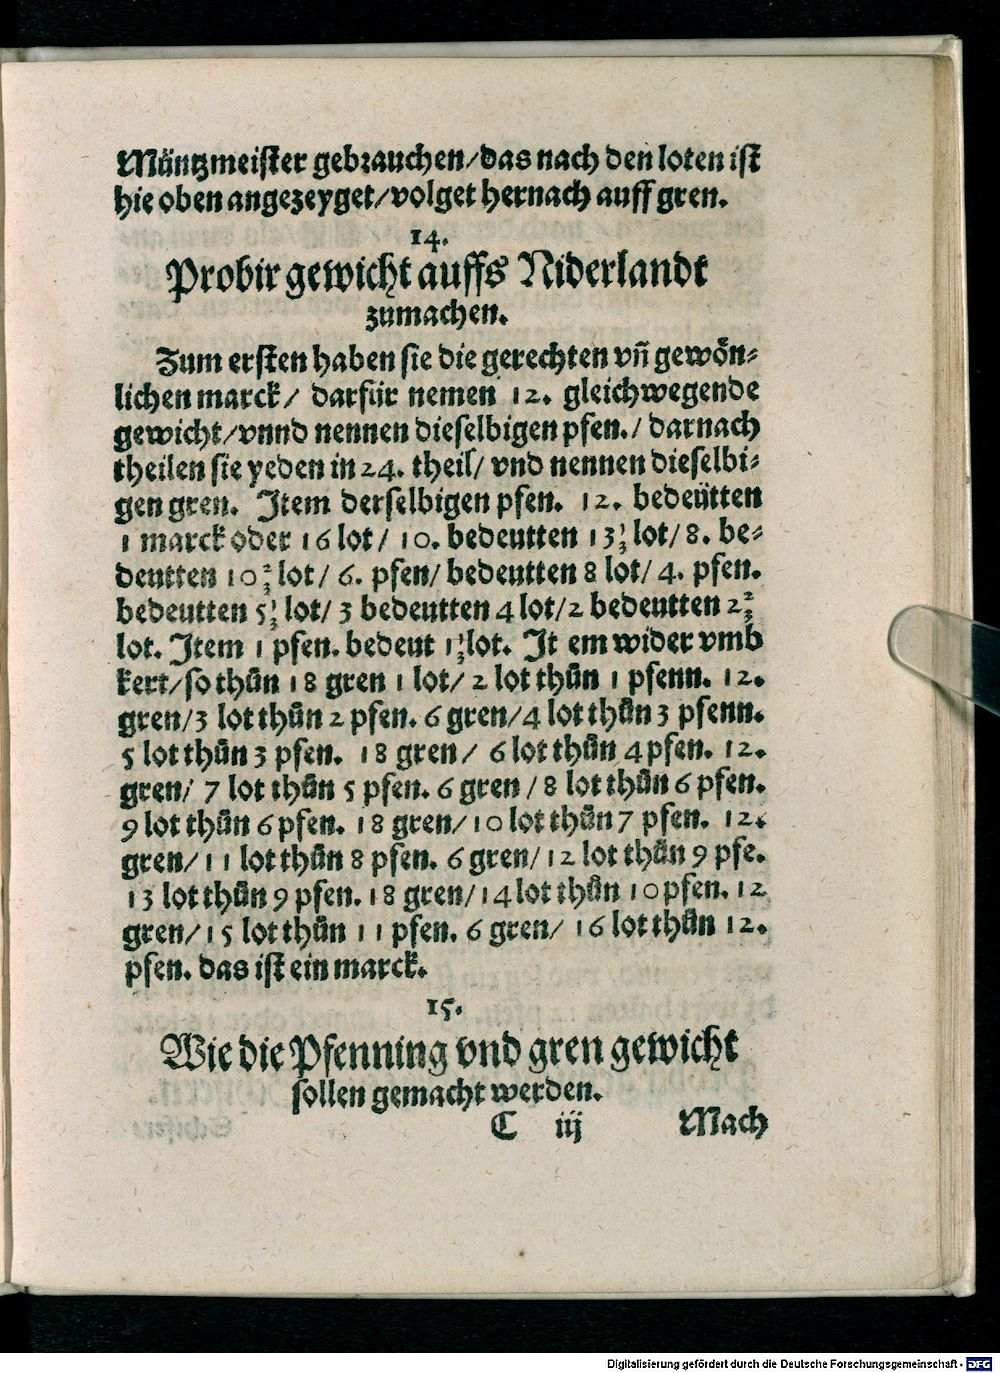 Müntzmeister gebrauchen/das nach den loten ist
hie oben angezeyget/volget hernach auff gren.
14.
Probir gewicht auffs Niderlandt
zumachen.
Zum ersten haben sie die gerechten vñ gewön⸗
lichen marck/ darfür nemen 12. gleichwegende
gewicht/vnnd nennen dieselbigen pfen./ darnach
theilen sie yeden in 24. theil/ vnd nennen dieselbi⸗
gen gren. Item derselbigen pfen. 12. bedeütten
1 marck oder 16 lot/ 10. bedeutten 13 1/3 lot/ 8. be⸗
deutten 10 2/3 lot/ 6. pfen/ bedeutten 8 lot/ 4. pfen.
bedeutten 5 1/3 lot/ 3 bedeutten 4 lot/2 bedeutten 2 2/3
lot. Item 1 pfen. bedeut 1 1/3 lot. It em wider vmb
kert/so thůn 18 gren 1 lot/ 2 lot thůn 1 pfenn. 12.
gren/3 lot thůn 2 pfen. 6 gren/4 lot thůn 3 pfenn.
5 lot thůn 3 pfen. 18 gren/ 6 lot thůn 4 pfen. 12.
gren/ 7 lot thůn 5 pfen. 6 gren /8 lot thůn 6 pfen.
9 lot thůn 6 pfen. 18 gren/10 lot thůn 7 pfen. 12.
gren/11 lot thůn 8 pfen. 6 gren/12 lot thůn 9 pfe.
13 lot thůn 9 pfen. 18 gren/14 lot thůn 10 pfen. 12
gren/15 lot thůn 11 pfen. 6 gren/ 16 lot thůn 12.
pfen. das ist ein marck.
15.
Wie die Pfenning vnd gren gewicht
sollen gemacht werden.
C iij Mach
Digitalisierung gefördert durch die Deutsche Forschungsgemeinschaft - DFG